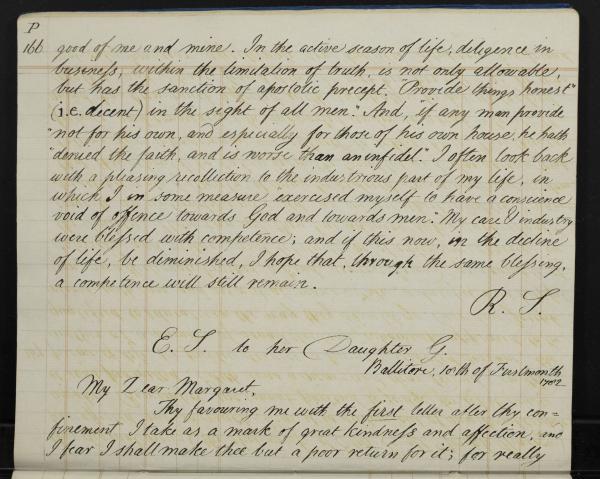 P
166 good of me and mine. In the active season of life, diligence in
business, within the limitation of truth, is not only allowable,
but has the sanction of apostolic precept. Provide things honest"
(i.e. decent) in the sight of all men." And, if any man provide
"not for his own, and especially for those of his own house, he hath
"denied the faith, and is worse than an infidel". I often look back
with a pleasing recollection to the industrious part of my life, in
which I in some measure "exercised myself to have a conscience
void of offence towards God and towards men". My care & industry
were blessed with competence; and if this now, in the decline
of life, be diminished, I hope that, through the same blessing,
a competence will still remain.
R. S.
E. S. to her Daughter G.
Ballitore, 10th of Firstmonth
1782
My Dear Margaret,
Thy favouring me with the first letter after thy con=
finement I take as a mark of great kindness and affection, and
I fear I shall make thee but a poor return for it; for really